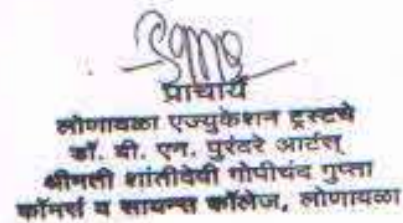 प्राचार्य
लोणावळा एज्युकेशन ट्रस्टचे
डॉ. बी. एन. पुरंदरे आर्टस्
श्रीमती शांतीदेवी गोपीचंद गुप्ता
कॉमर्स व सायन्स कॉलेज, लोणावळा